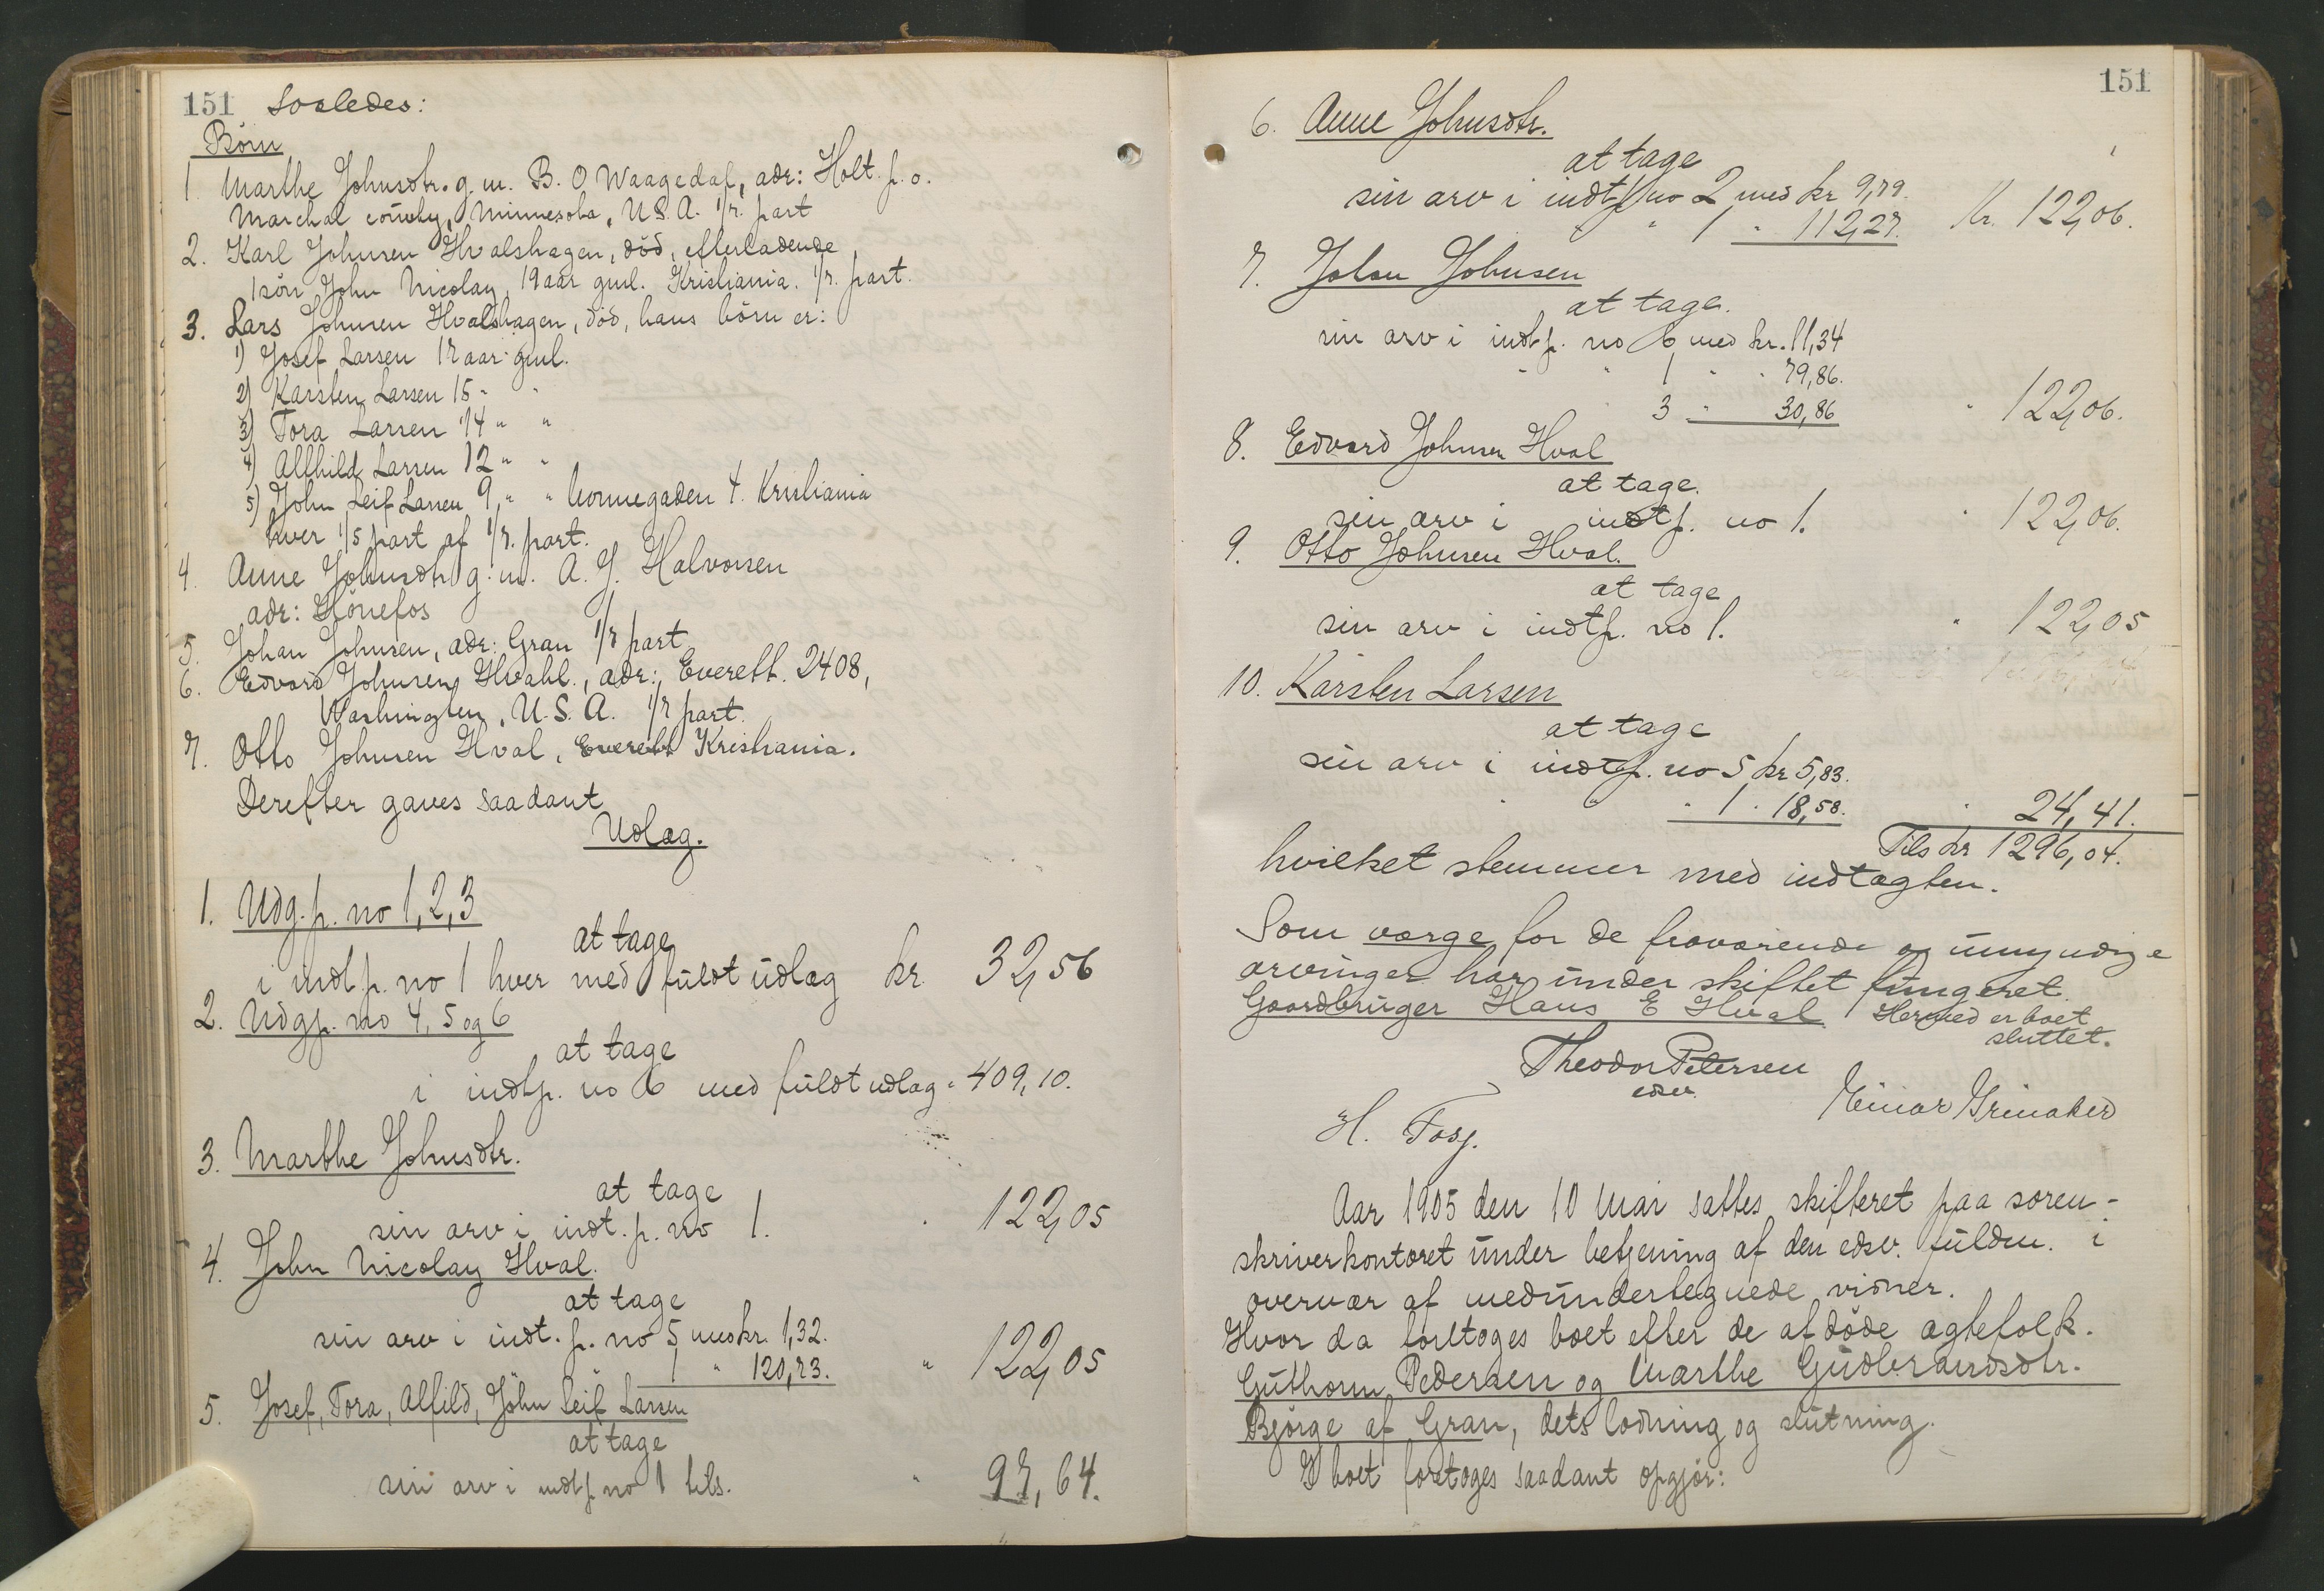 151 Saaledes:
Börn
1. Marthe Johnsdtr. g. m. B. O Waagedal, adr: Holt. p. o.
Marchal county, Minnesota, U.S.A. 1/7. part
2. Karl Johnsen Hvalshagen, död, efterladende
1 sön John Nicolay, 19 aar gml. Kristiania. 1/7. part.
3. Lars Johnsen Hvalshagen, död, hans börn er:
1) Josef Larsen 17 aar gml.
2) Karsten Larsen 15 " "
3) Tora Larsen 14 " "
4) Alfhild Larsen 12 " "
5) John Leif Larsen 9 " " 4. Kristiania
hver 1/5 part af 1/7. part.
4. Anne Johnsdtr g. m. A. J. Halvorsen
adr: Hönefos
5. Johan Johnsen, adr: Gran 1/7 part
6. Edvard Johnsen Hvahl., adr:, Everett. 2408,
Washington, U.S.A. 1/7 part.
7. Otto Johnsen Hval, Everett Kristiania.
Derefter gaves saadant
Udlæg.
1. Udg. p. no 1, 2, 3
at tage
i indt. p. no 1 hver med fuldt udlæg kr. 32,56
2. Udgp. no 4, 5 og 6
at tage
i indtp. no 6 med fuldt udlæg " 409,10.
3. Marthe Johnsdtr.
at tage
sin arv i indt. p. no 1. " 122,05
4. John Nicolay Hval.
at tage
sin arv i indt. p. no 5 med kr. 1,32.
1 " 120,73. " 122,05
5. Josef, Tora, Alfild, John Leif Larsen
at tage
sin arv i indtp no 1 tils. " 97,64.
151
6. Anne Johnsdtr.
at tage
sin arv i indtp no 2 med kr 9,79.
" 1 " 112,27. Kr. 122,06.
7. Johan Johnsen
at tage.
sin arv i indtp. no 6 med kr. 11,34
" " 1 " " 79,86.
" 3 " 30,86 " 122,06.
8. Edvard Johnsen Hval
at tage.
sin arv i indtp. no 1. " 122,06.
9. Otto Johnsen Hval.
at tage
sin arv i indtp. no 1. " 122,05
10. Karsten Larsen
at tage
sin arv i indtp. no 5 kr 5,83.
" " " 1 " 18,58. " 24,41.
Tils kr 1296,04.
hvilket stemmer med indtægten.
Som værge for de fraværende og umyndige
arvinger har under skiftet fungeret
Gaardbruger Hans E Hval. Hermed er boet
sluttet.
Theodor Petersen
edsv.
H. Foss. Einar Grinaker
Aar 1905 den 10 Mai sattes skifteret paa soren-
skriverkontoret under betjening af den edsv. fuldm. i
overvær af medundertegnede vidner.
Hvor da foretoges boet efter de afdöde ægtefolk.
Guthorm Pedersen og Marthe Gudbrandsdtr.
Bjørge af Gran, dets lodning og slutning.
I boet foretoges saadant opgjör: